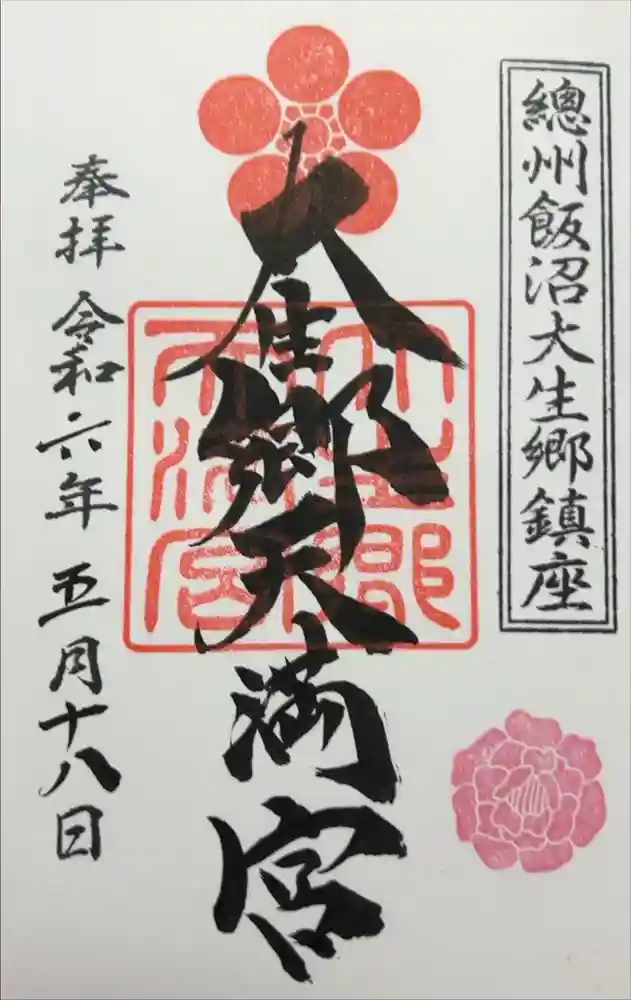 總州飯沼大生郷鎮座
大生郷天満宮
大生郷
天満宮
奉拝 令和六年 五月十八日